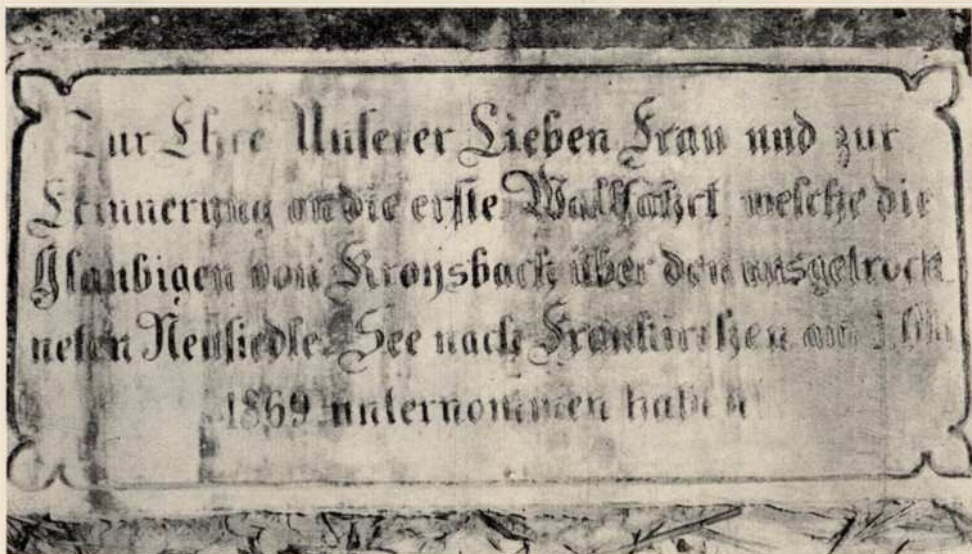 Zur Ehre Unserer Lieben Frau und zur
Erinnerung an die erste Wallfahrt, welche die
Glaubigen von Kroysbach über den ausgetrock
neten Neusiedler See nach Frauenkirchen am 1.
1869 unternommen haben